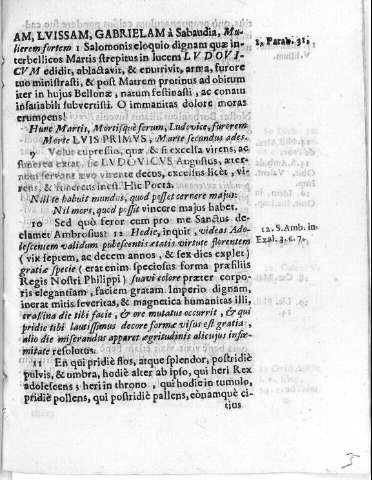 AM, LVISSAM, GABRIELAM à Sabaudia, Mu-
lierem fortem 1 Salomonis eloquio dignam quæ in-
terbellicos Martis strepitus in lucem LVDOVI-
CVM edidit, ablactavit, & enutrivit, arma, furore
tuo ministrasti, & post Matrem protinus ad obitum
iter in hujus Bellonæ, natum festinasti, ac conatu
insaiabili subvertisti. O immanitas dolore moras
erumpens!
1. Parab. 31.
Hunc Martis, Mortisquè ferum, Ludovice, furorem
Morte LUIS PRIMUS, Marte secundus ades.
9 Velut cupressus, quæ & si excelsa virens, ac
funerea extat, sic LUDOVICUS Augustus, æter-
num servans ævo virente decus, excelsus licèt, vi-
rens, & funereus inest. Hic Poeta.
Nil te habuit mundus, quod posset cernere majus:
Nil mors, quod possit vincere majus habet.
10 Sed quò feror cum pro me Sanctus de-
clamet Ambrosius: 12 Hodie, inquit, videas Ado-
lescentem validum pubescentis ætatis virtute florentem
12. S. Amb. in
Exal. 3. c. 7.
( vix septem, ac decem annos, & sex dies explet )
gratia specie ( erat enim speciosus forma præ filiis
Regis Nostri Philippi ) suavi colore præter corpo-
ris elegantiam, faciem gratam Imperio dignam,
inerat mitis severitas, & magnetica humanitas illi,
crastina die tibi facie, & ore mutatus occurrit, & qui
pridie tibi lautissimus decore formæ visus est gratia,
alio die miserandus apparet ægritudinis alicujus infir-
mitate resolutus.
11 En qui pridie flos, atque splendor, postridiè
pulvis, & umbra, hodiè alter ab ipso, qui heri Rex
adolescens; heri in throno, qui hodie in tumulo,
pridiè pollens, qui postridiè pallens, eònamque ci-
tius